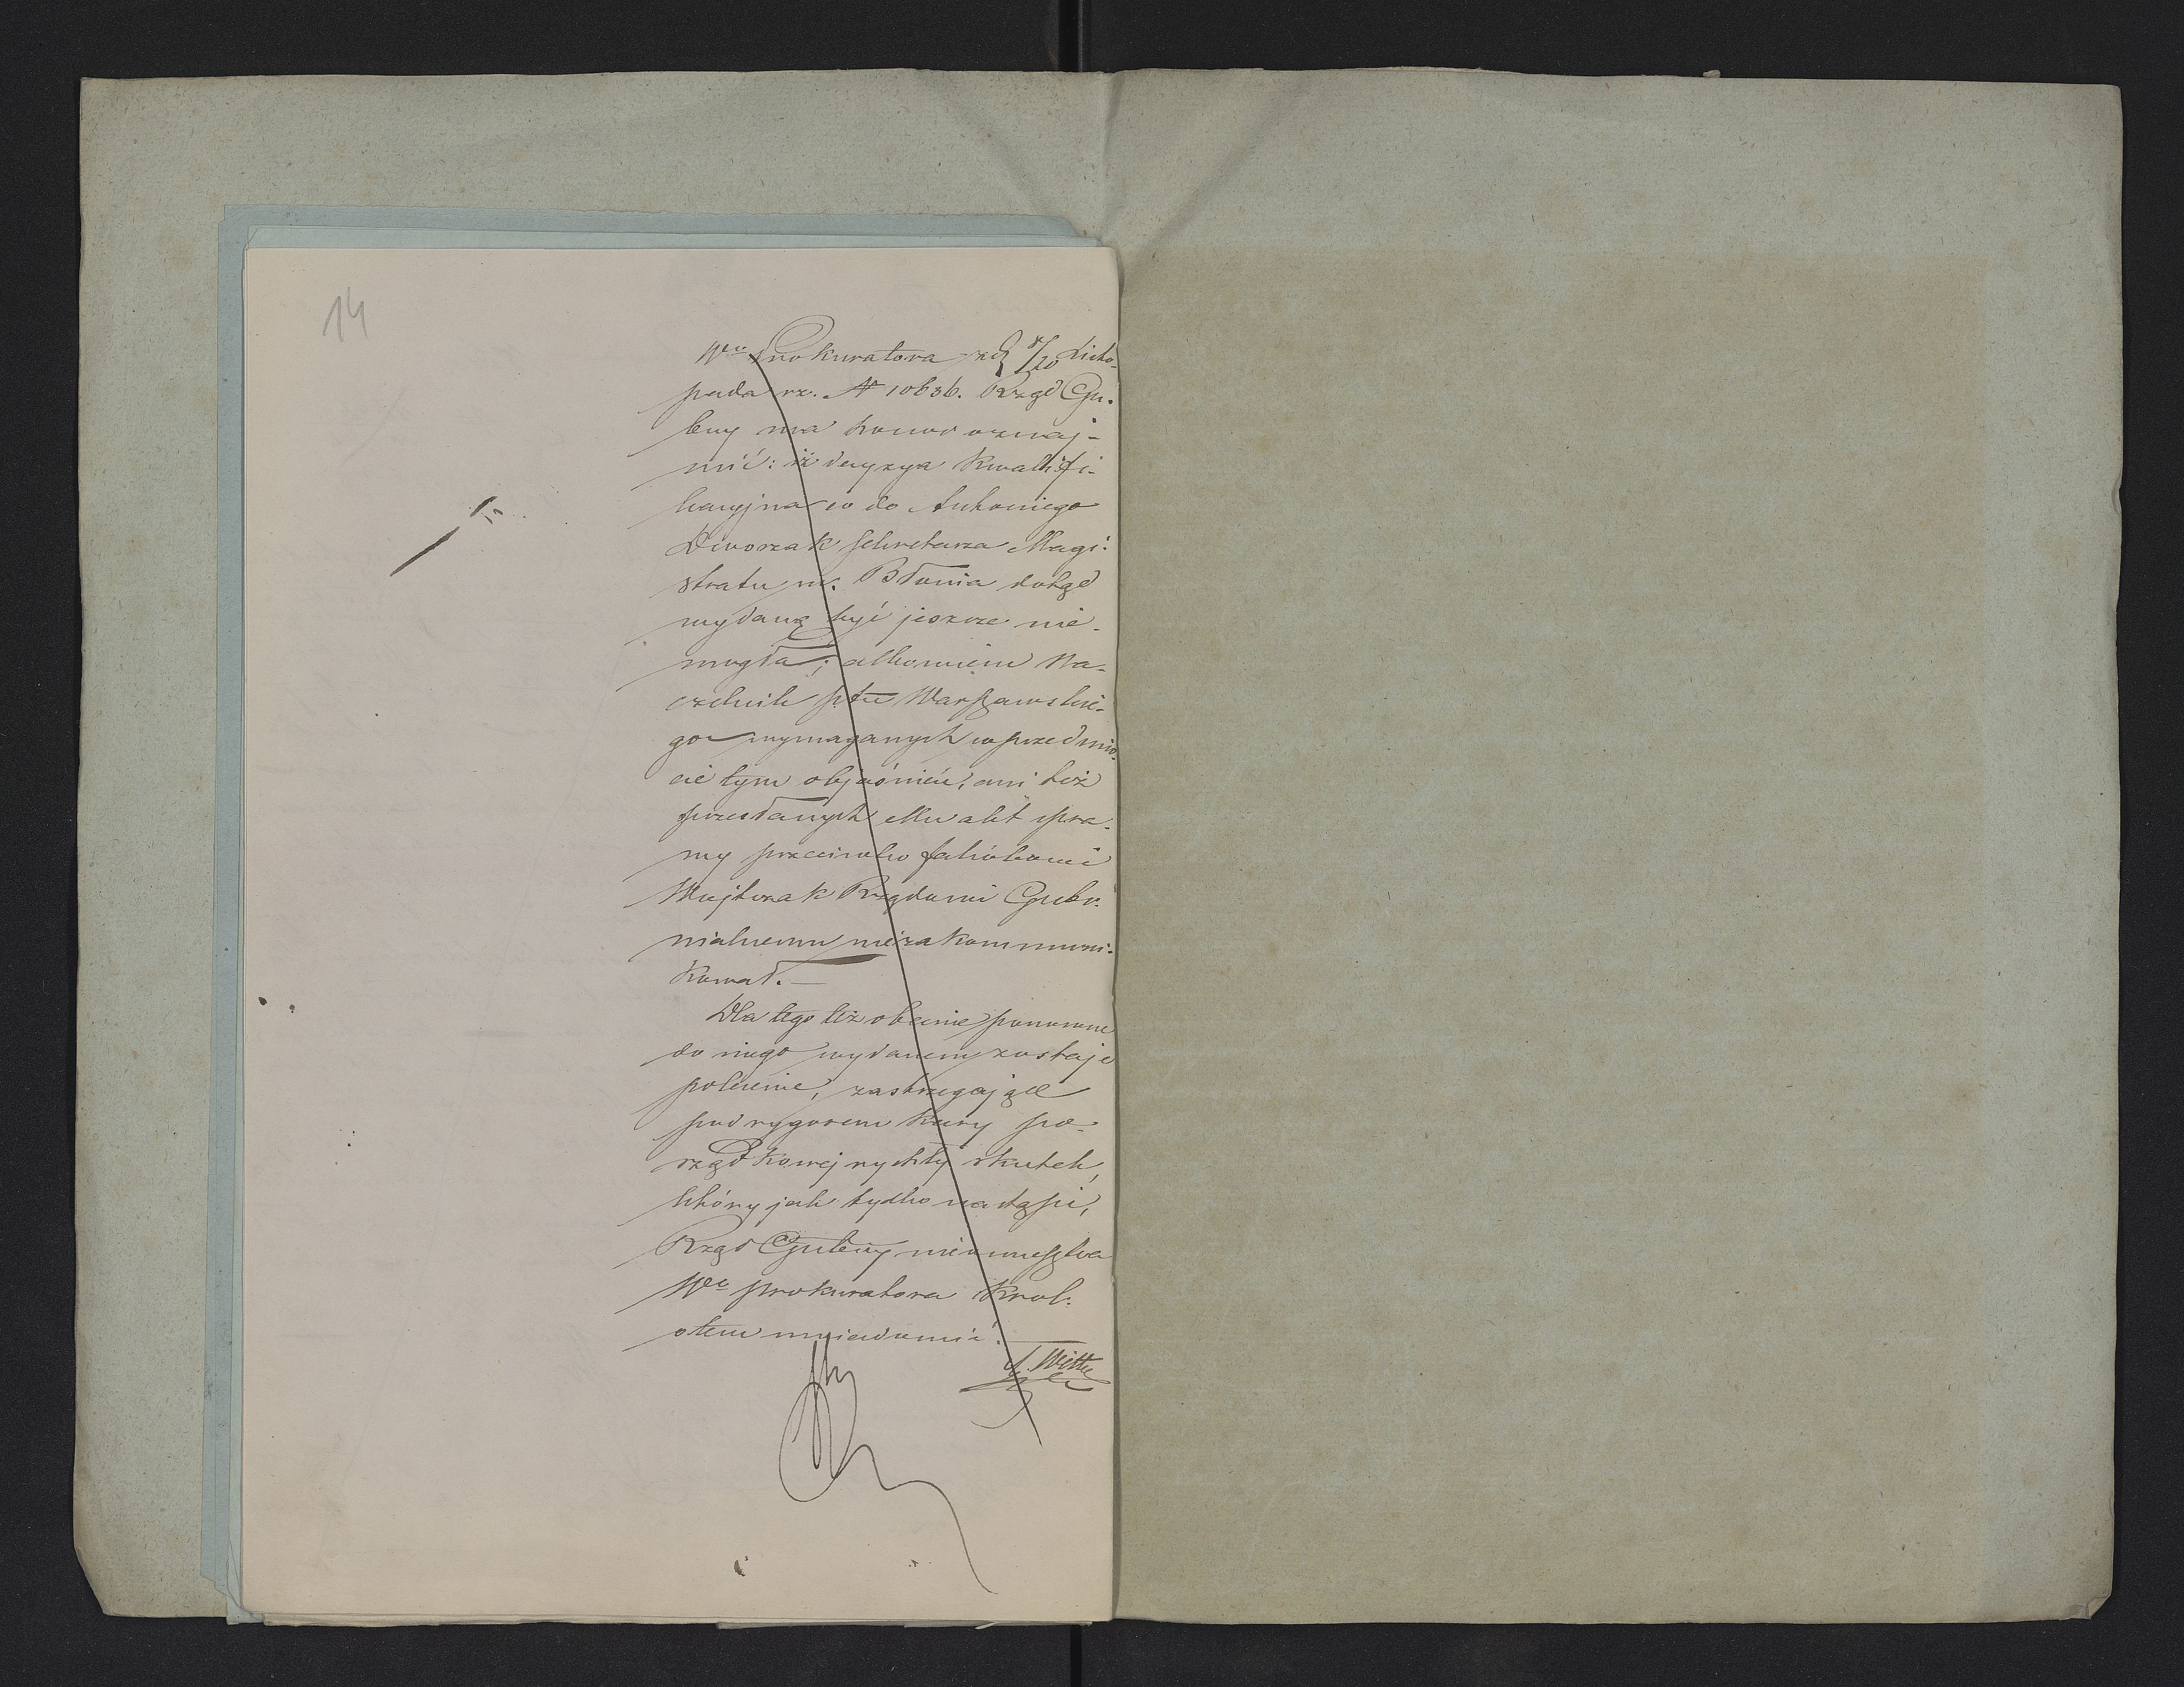 14
Wo Prokuratora z d 8/20 Listo-
pada rz. N 10636. Rząd Gu-
berny ma honor oznaj-
mić: iż decyzya kwalifi-
kacyjna co do Antoniego
Dworzak Sekretarza Magi-
stratu m. Błonia dotąd
wydaną być jeszcze nie-
mogła; albowiem Na-
czelnik ptu Warszawskie-
go wymaganych w przedmio-
cie tym objaśnień, ani też
przesłanych Mu akt spra-
wy przeciwko Jakóbowi
Wujtorak Rządowi Guber-
nialnemu niezakommuni-
kował.—
Dla tego też obecnie ponowne
do niego wydanem zostaje
polecenie, zastrzegające
pod rygorem kary po-
rządkowej rychły skutek,
który jak tylko nastąpi,
Rząd Guberny nieomieszka
Wo Prokuratora Król.
otem uwiadomić.